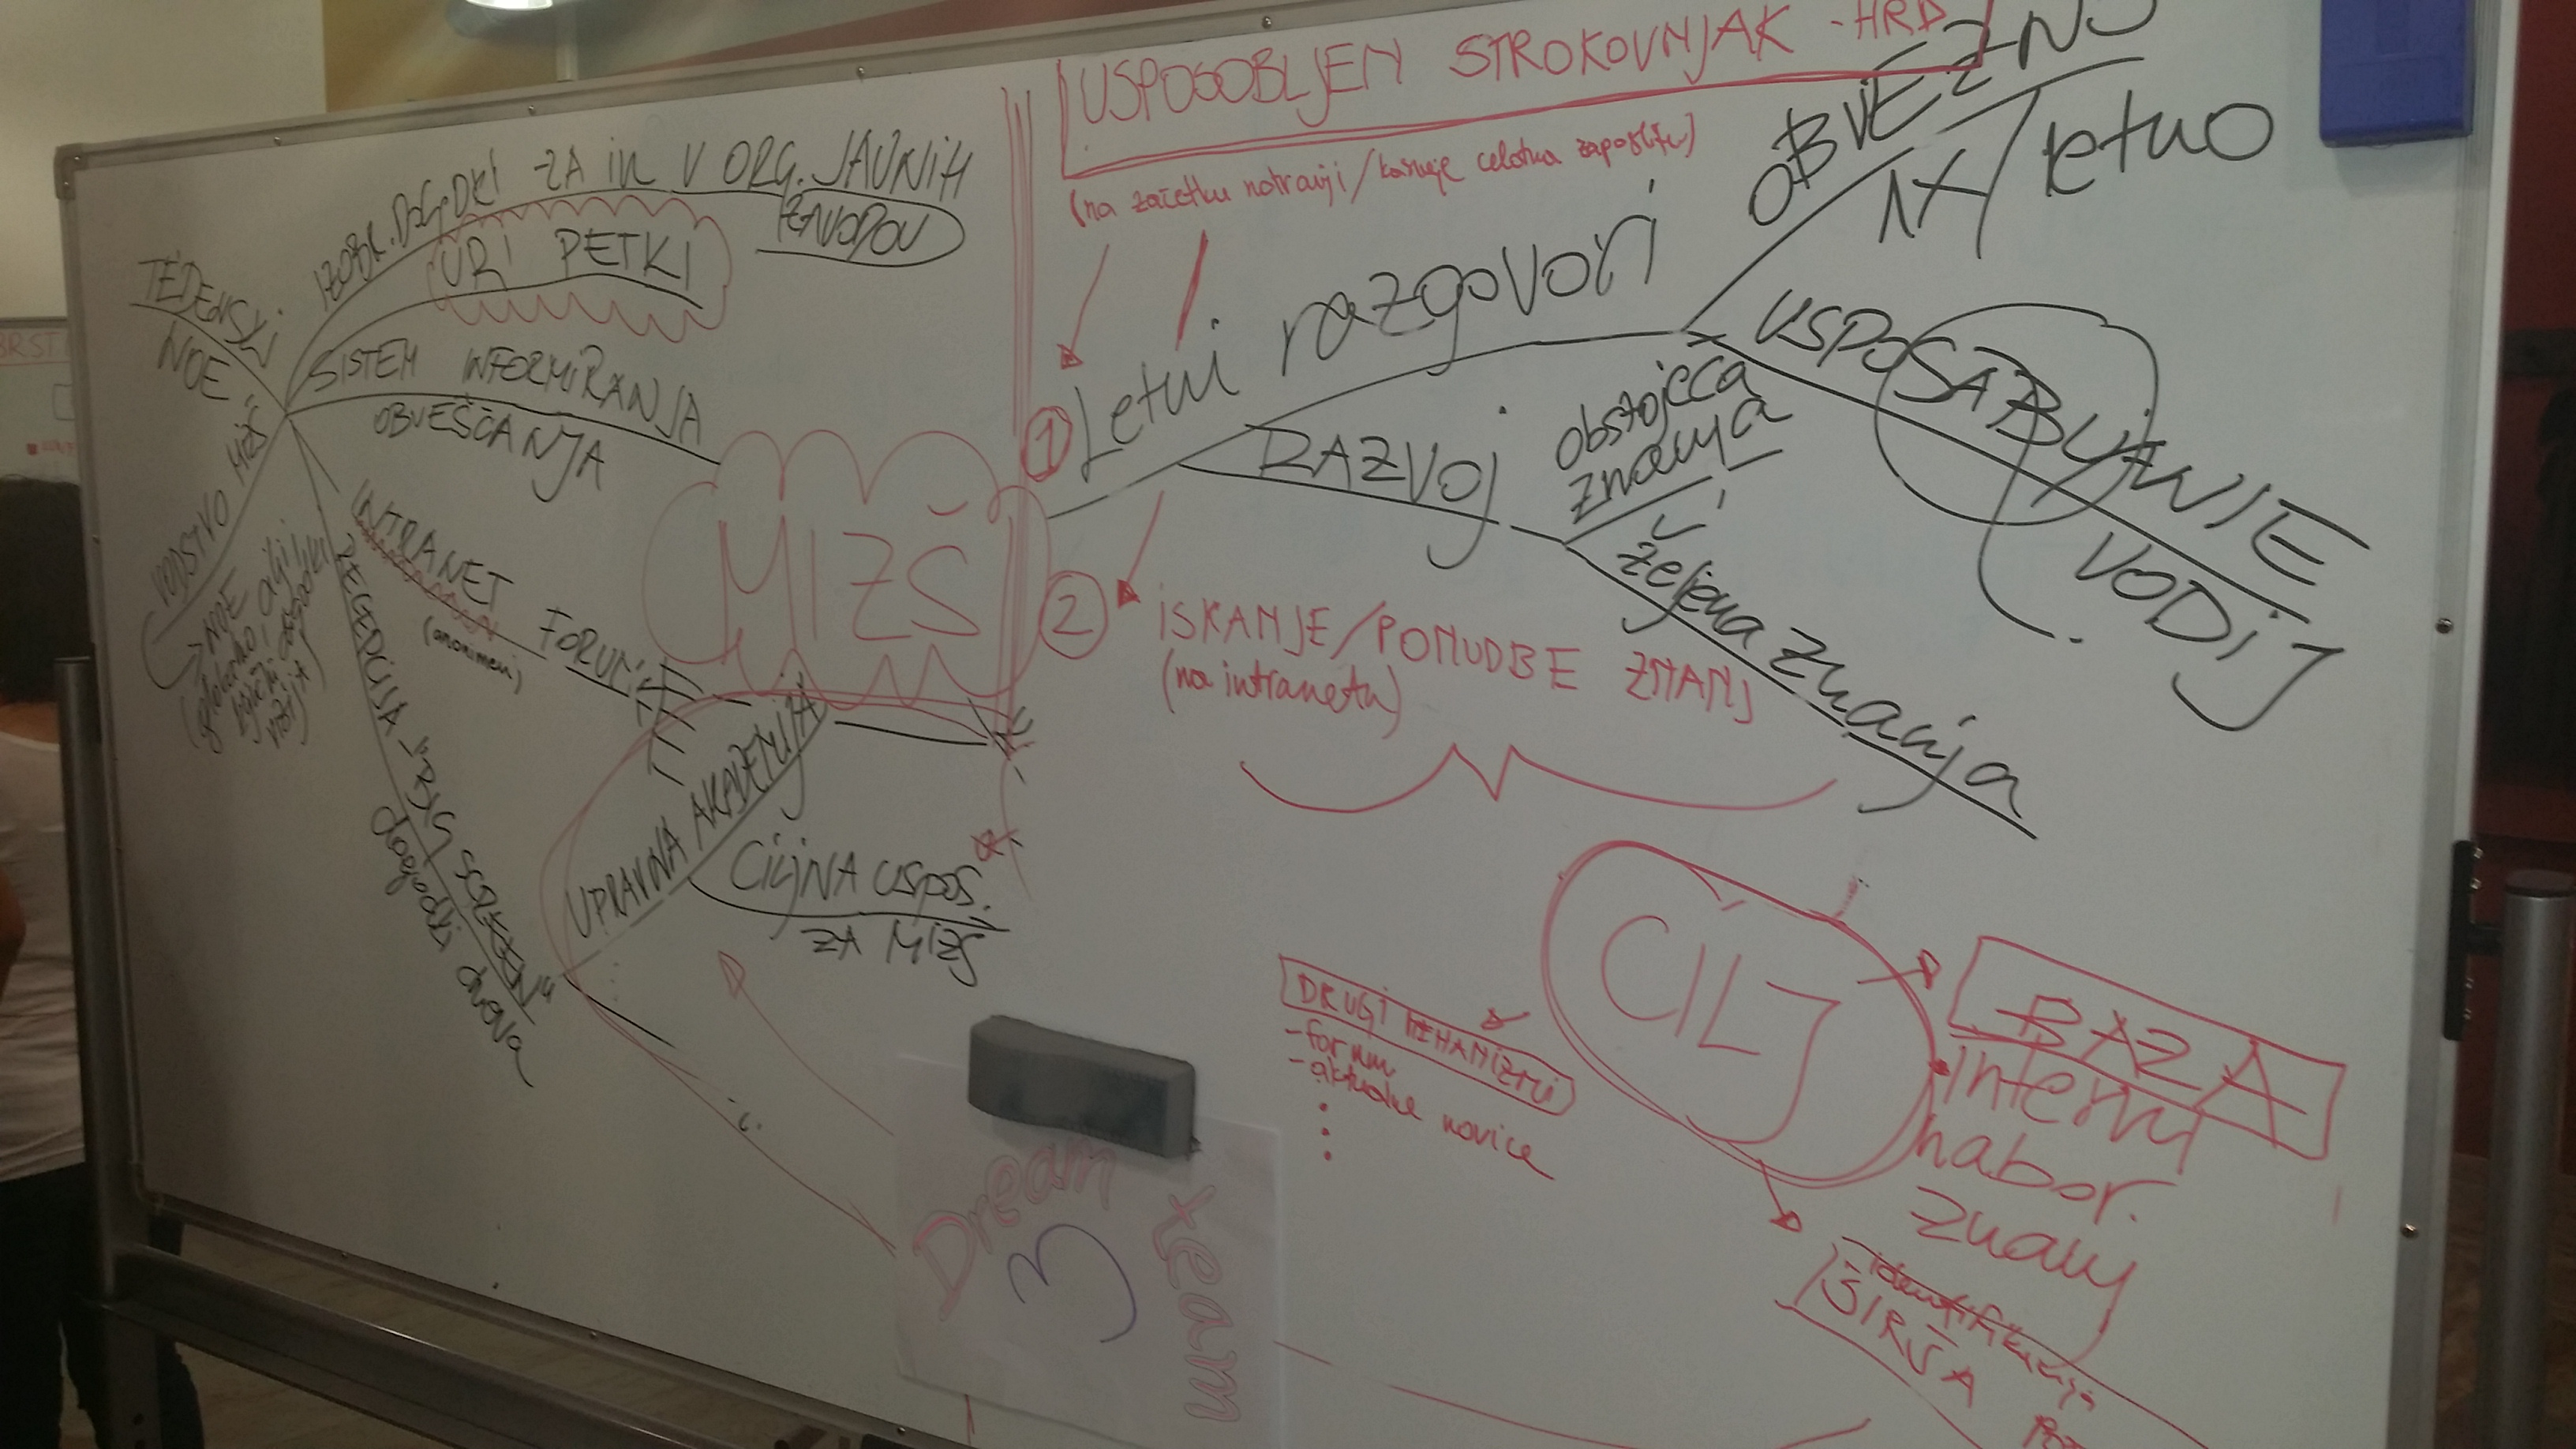 USPOSOBLJEN STROKOVNJAK - HRD
(na začetku notranji / kasneje celotna zaposlitev)
IZOBR. DOG. DKI ZA in V ORG. JAVNIH
ZAVODOV
URI PETKI
TEDENSKI
NOE
SISTEM INFORMIRANJA
OBVEŠČANJA
VODSTVO MIZŠ
NOE
INTRANET FORUM
(anonimen)
dogodki dneva
MIZŠ
UPRAVNA AKADEMIJA
CILJNA USPOS.
ZA MIZŠ
1 Letni razgovori
OBVEZNO
1X/letno
USPOSABLJANJE
VODIJ
RAZVOJ
obstoječa
znanja
željena znanja
2 ISKANJE/PONUDBE ZNANJ
(na intranetu)
CILJ
DRUGI MEHANIZMI
- forum
- aktualne novice
BAZA
Interni
nabor.
znanj
identifikacija
ŠIRŠA
Dream
team
3